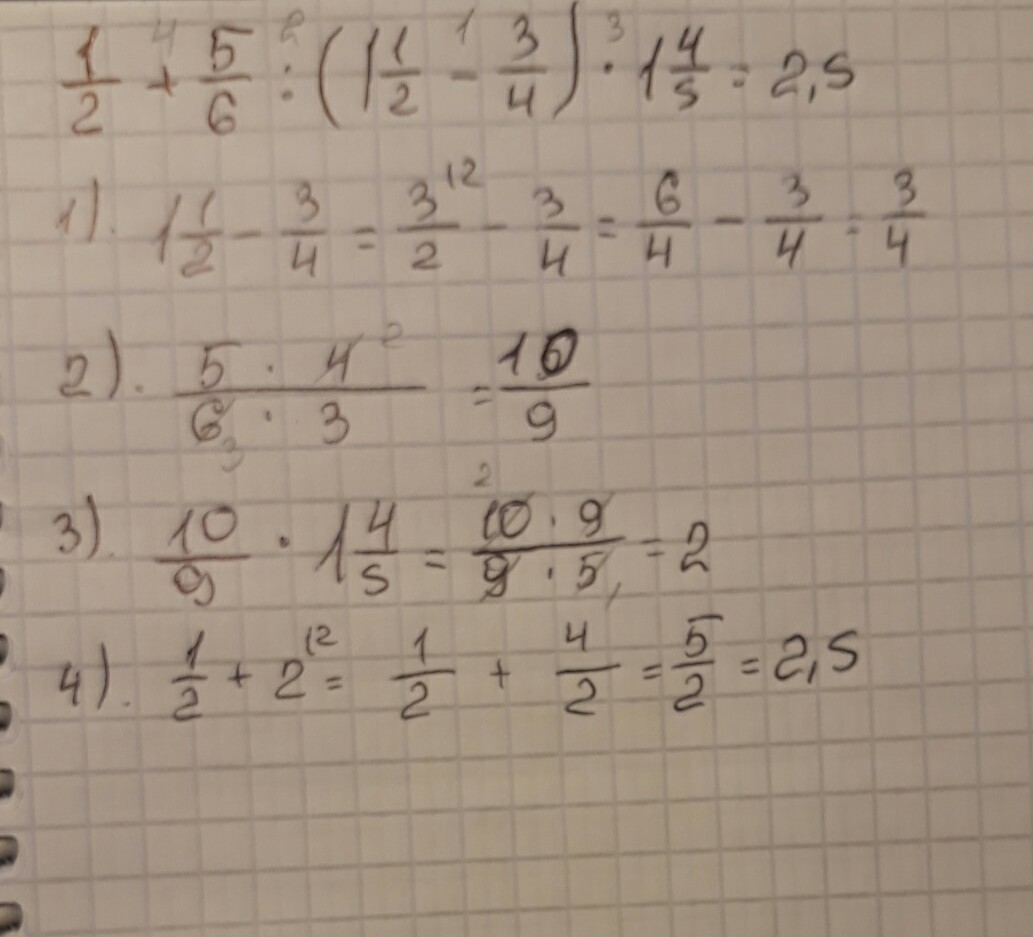 1/2 + 5/6 : (1 1/2 - 3/4) · 1 4/5 = 2,5
1). 1 1/2 - 3/4 = 3/2 - 3/4 = 6/4 - 3/4 = 3/4
2). 5 · 4 / 6 · 3 = 10/9
3). 10/9 · 1 4/5 = 10 · 9 / 9 · 5 = 2
4). 1/2 + 2 = 1/2 + 4/2 = 5/2 = 2,5